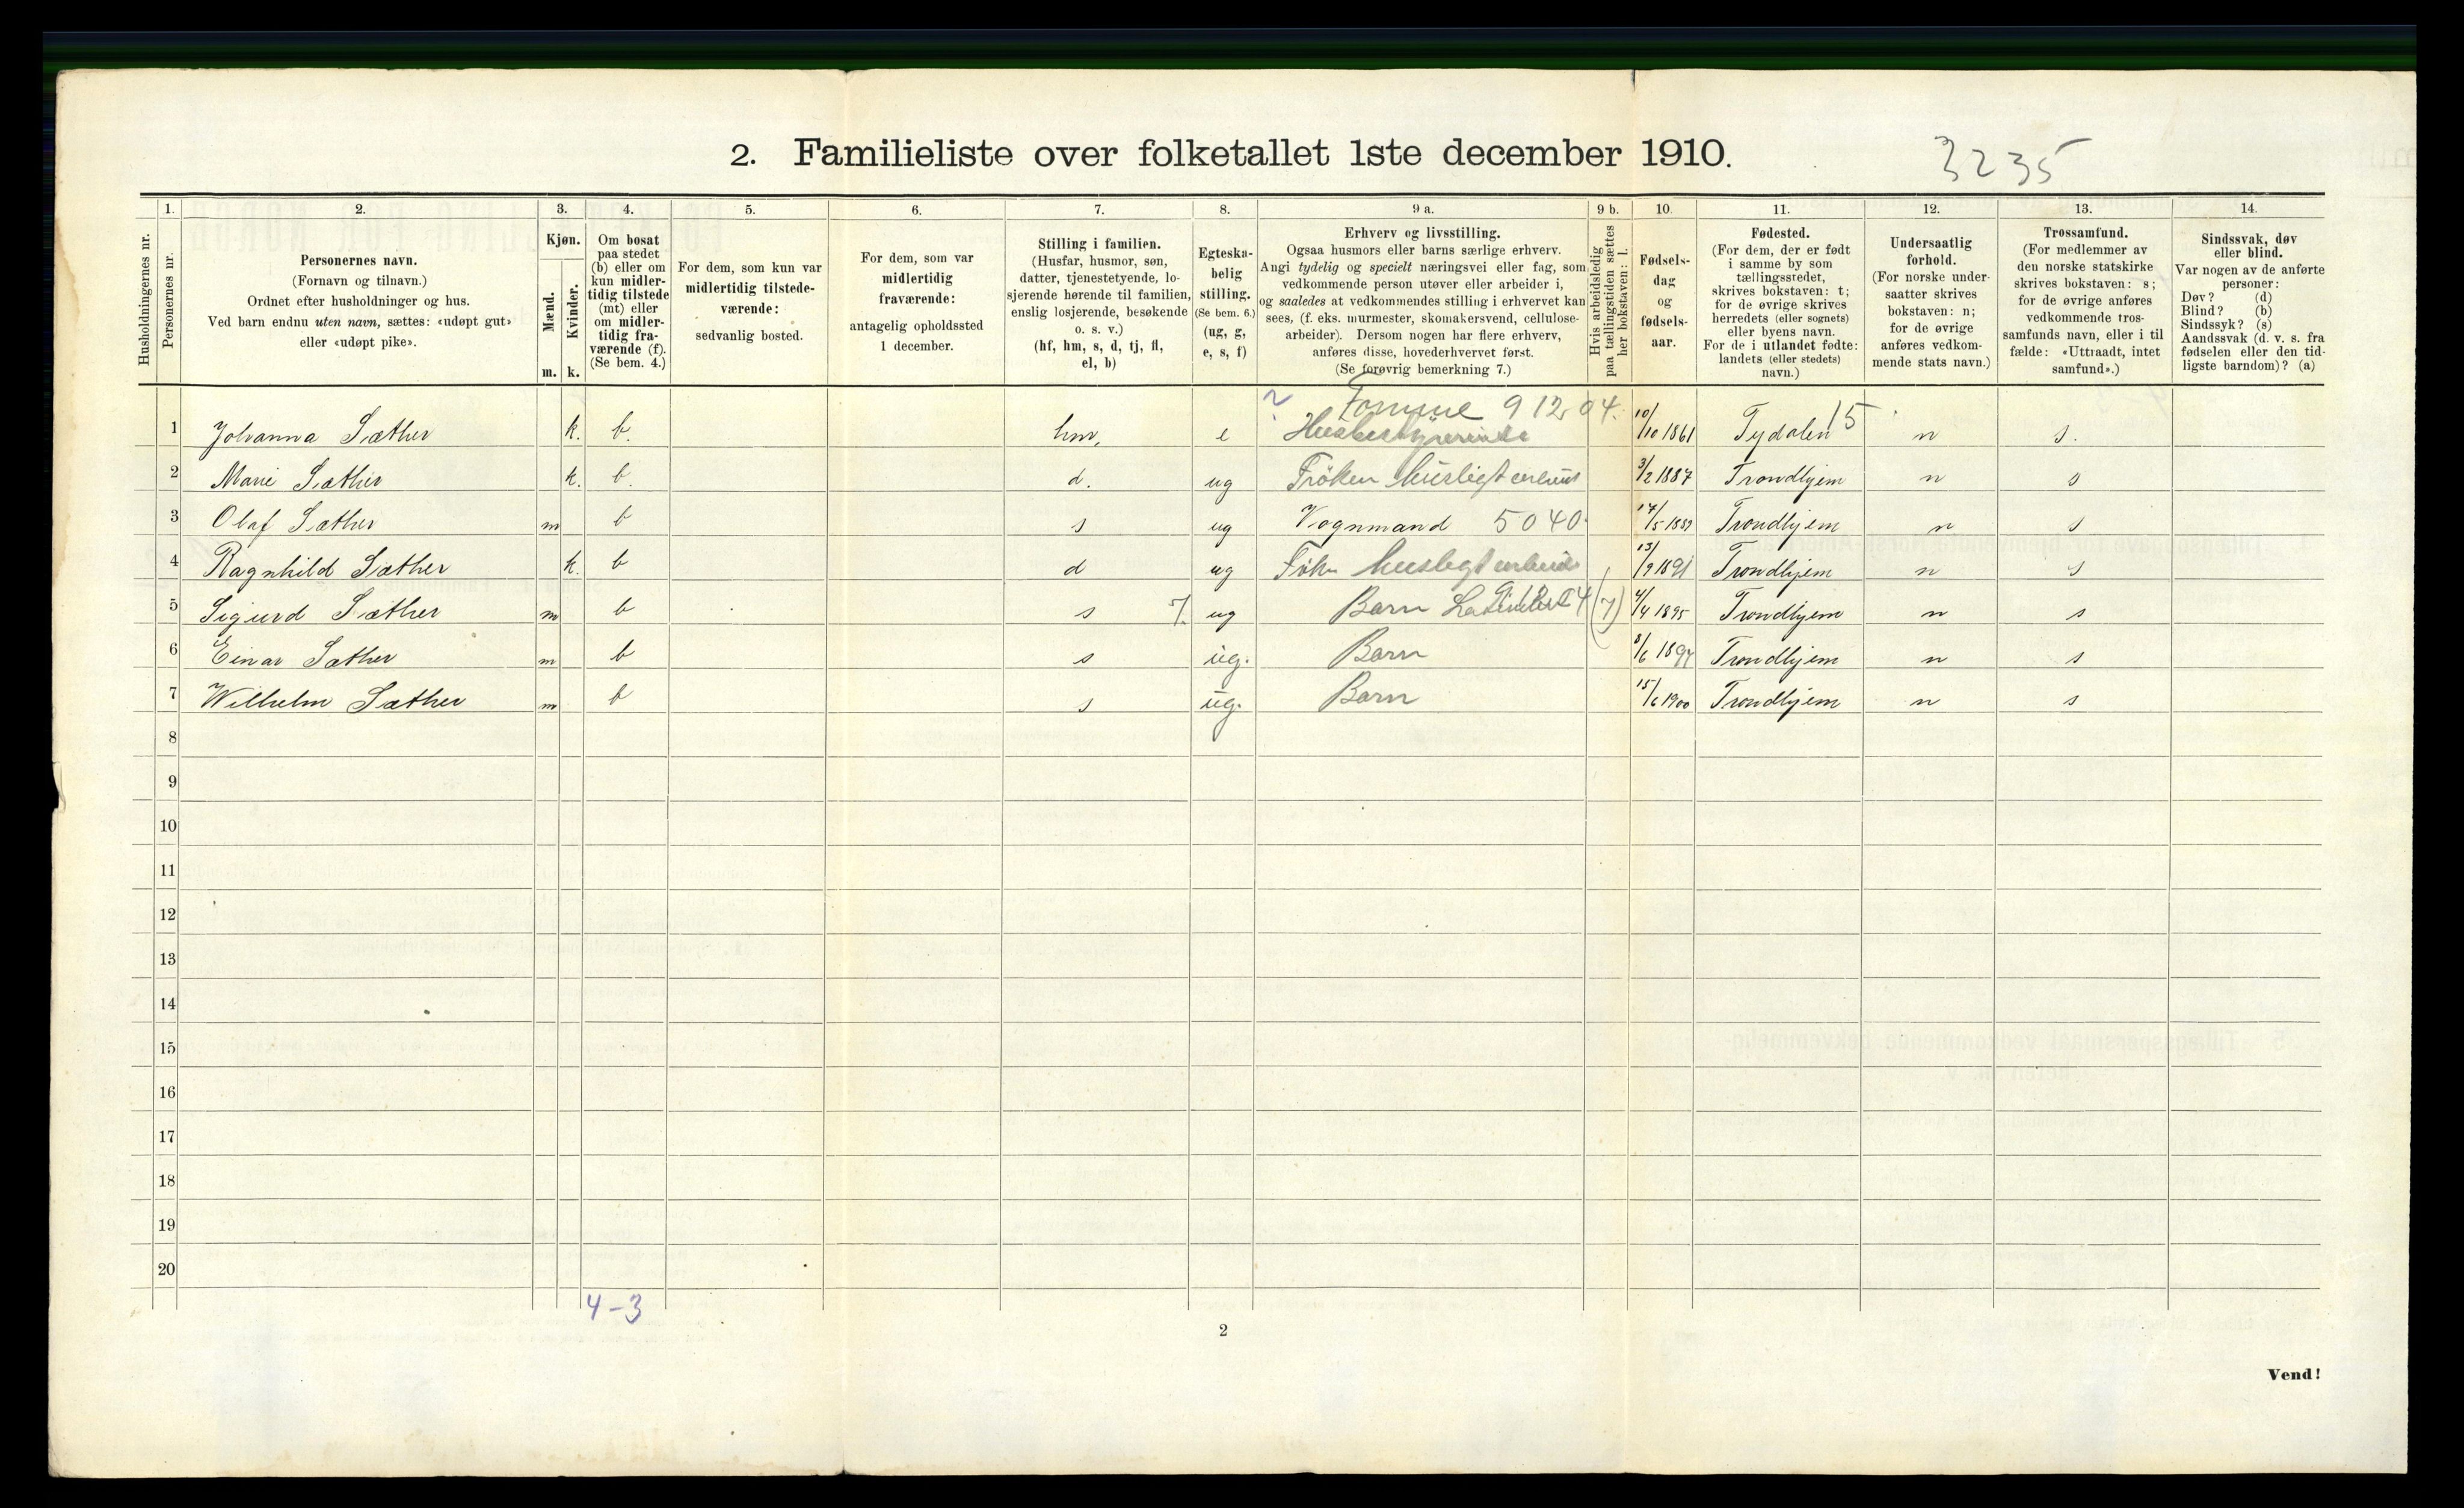 2. Familieliste over folketallet 1ste december 1910.
3235
Husholdningernes nr.
1.
Personernes nr.
2.
Personernes navn.
(Fornavn og tilnavn.)
Ordnet efter husholdninger og hus.
Ved barn endnu uten navn, sættes: «udøpt gut»
eller «udøpt pike».
3.
Kjøn.
Mænd.
Kvinder.
m. k.
4.
Om bosat
paa stedet
(b) eller om
kun midler-
tidig tilstede
(mt) eller
om midler-
tidig fra-
værende (f).
(Se bem. 4.)
5.
For dem, som kun var
midlertidig tilstede-
værende:
sedvanlig bosted.
6.
For dem, som var
midlertidig
fraværende:
antagelig opholdssted
1 december.
7.
Stilling i familien.
(Husfar, husmor, søn,
datter, tjenestetyende, lo-
sjerende hørende til familien,
enslig losjerende, besøkende
o. s. v.)
(hf, hm, s, d, tj, fl,
el, b)
8.
Egteska-
belig
stilling.
(Se bem. 6.)
(ug, g,
e, s, f)
9 a.
Erhverv og livsstilling.
Ogsaa husmors eller barns særlige erhverv.
Angi tydelig og specielt næringsvei eller fag, som
vedkommende person utøver eller arbeider i,
og saaledes at vedkommendes stilling i erhvervet kan
sees, (f. eks. murmester, skomakersvend, cellulose-
arbeider). Dersom nogen har flere erhverv,
anføres disse, hovederhvervet først.
(Se forøvrig bemerkning 7.)
9 b.
Hvis arbeidsledig
paa tællingstiden sættes
her bokstaven: l.
10.
Fødsels-
dag
og
fødsels-
aar.
11.
Fødested.
(For dem, der er født
i samme by som
tællingsstedet,
skrives bokstaven: t;
for de øvrige skrives
herredets (eller sognets)
eller byens navn.
For de i utlandet fødte:
landets (eller stedets)
navn.)
12.
Undersaatlig
forhold.
(For norske under-
saatter skrives
bokstaven: n;
for de øvrige
anføres vedkom-
mende stats navn.)
13.
Trossamfund.
(For medlemmer av
den norske statskirke
skrives bokstaven: s;
for de øvrige anføres
vedkommende tros-
samfunds navn, eller i til
fælde: «Uttraadt, intet
samfund».)
14.
Sindssvak, døv
eller blind.
Var nogen av de anførte
personer:
Døv? (d)
Blind? (b)
Sindssyk? (s)
Aandssvak (d. v. s. fra
fødselen eller den tid-
ligste barndom)? (a)
? 9 12 04.
1 Johanna Sæther k. b. hm, e Husbestyrerinde 10/10 1861 Tydalen 15 n s.
2 Marie Sæther k. b. d. ug Frøken husligt 3/2 1887 Trondhjem n s
3 Olaf Sæther m b s ug Vognmand 5040 17/5 1889 Trondhjem n s
4 Ragnhild Sæther k. b d ug husligt 13/9 1891 Trondhjem n s
5 Sigurd Sæther m b s 7. ug Barn (7) 4/4 1895 Trondhjem n s
6 Einar Sæther m b s ug. Barn 8/6 1897 Trondhjem n s
7 Wilhelm Sæther m b s ug. Barn 15/6 1900 Trondhjem n s
8
9
10
11
12
13
14
15
16
17
18
19
20
4-3
2
Vend!